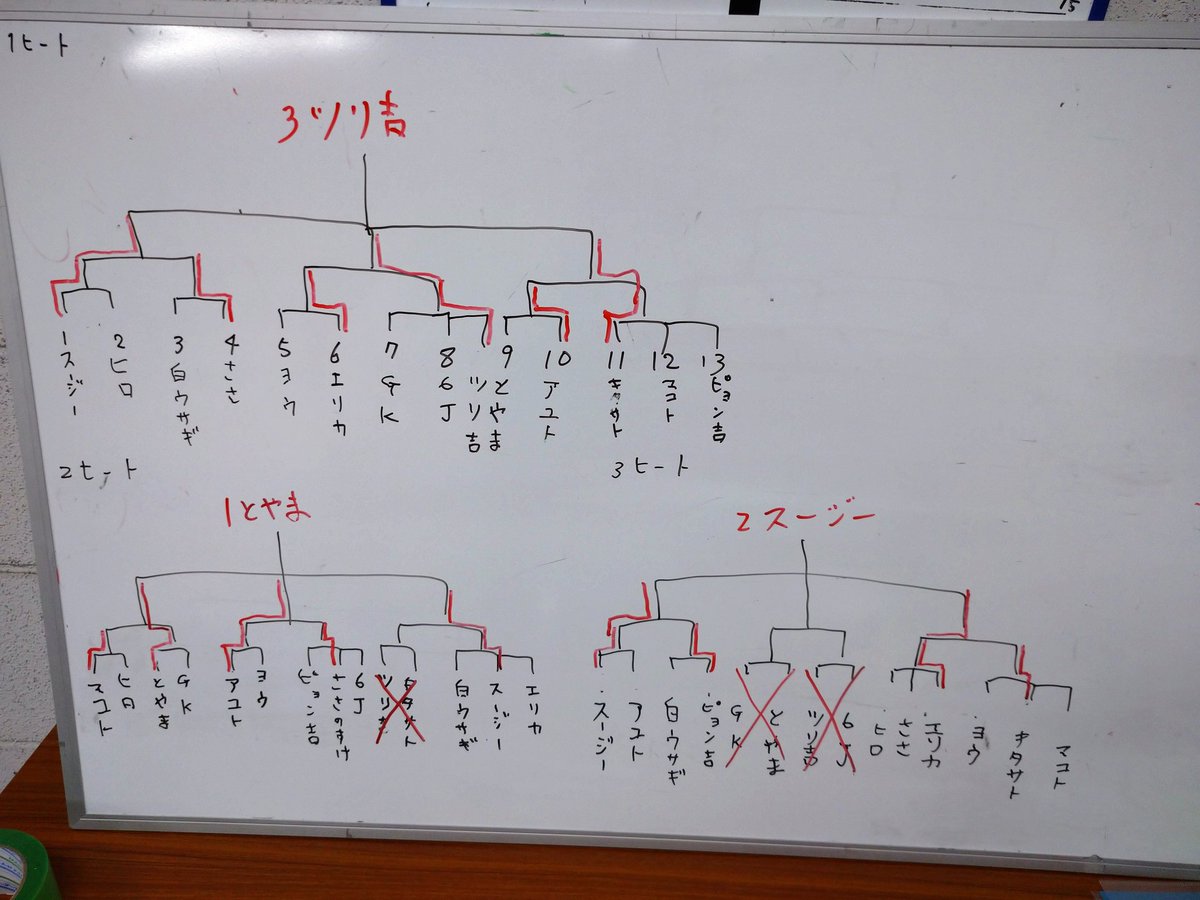 15
1ヒート
3ツリ吉
1スージー
2ヒロ
3白ウサギ
4ささ
5ヨウ
6エリカ
7GK
8GJ
ツリ吉
9とやま
10アユト
11キタサト
12マコト
13ピョン吉
2ヒート
3ヒート
1とやま
2スージー
マコト
ヒロ
とやま
GK
アユト
ヨウ
ピョン吉
ささのすけ
GJ
ツリ吉
キタサト
白ウサギ
スージー
エリカ
スージー
アユト
白ウサギ
ピョン吉
GK
とやま
ツリ吉
GJ
ヒロ
ささ
エリカ
ヨウ
キタサト
マコト